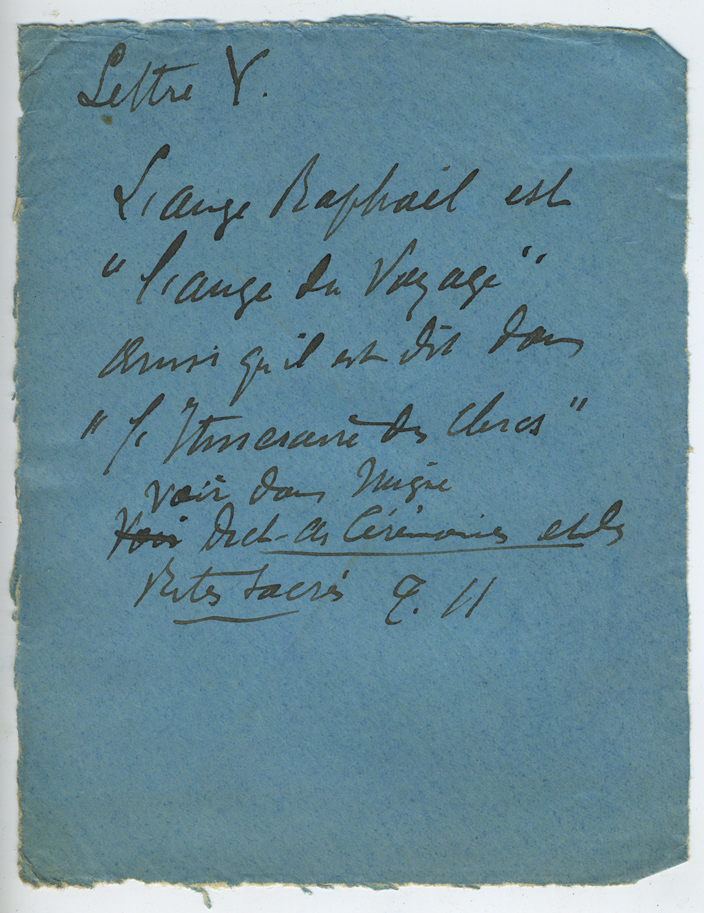 Lettre Y.
L'ange Raphaël est
"l'ange du Voyage"
ainsi qu'il est dit dans
"l'Itineraire des Clercs"
voir dans Migne
Voir Dict. des Cérémonies et des
Rites Sacrés T. II